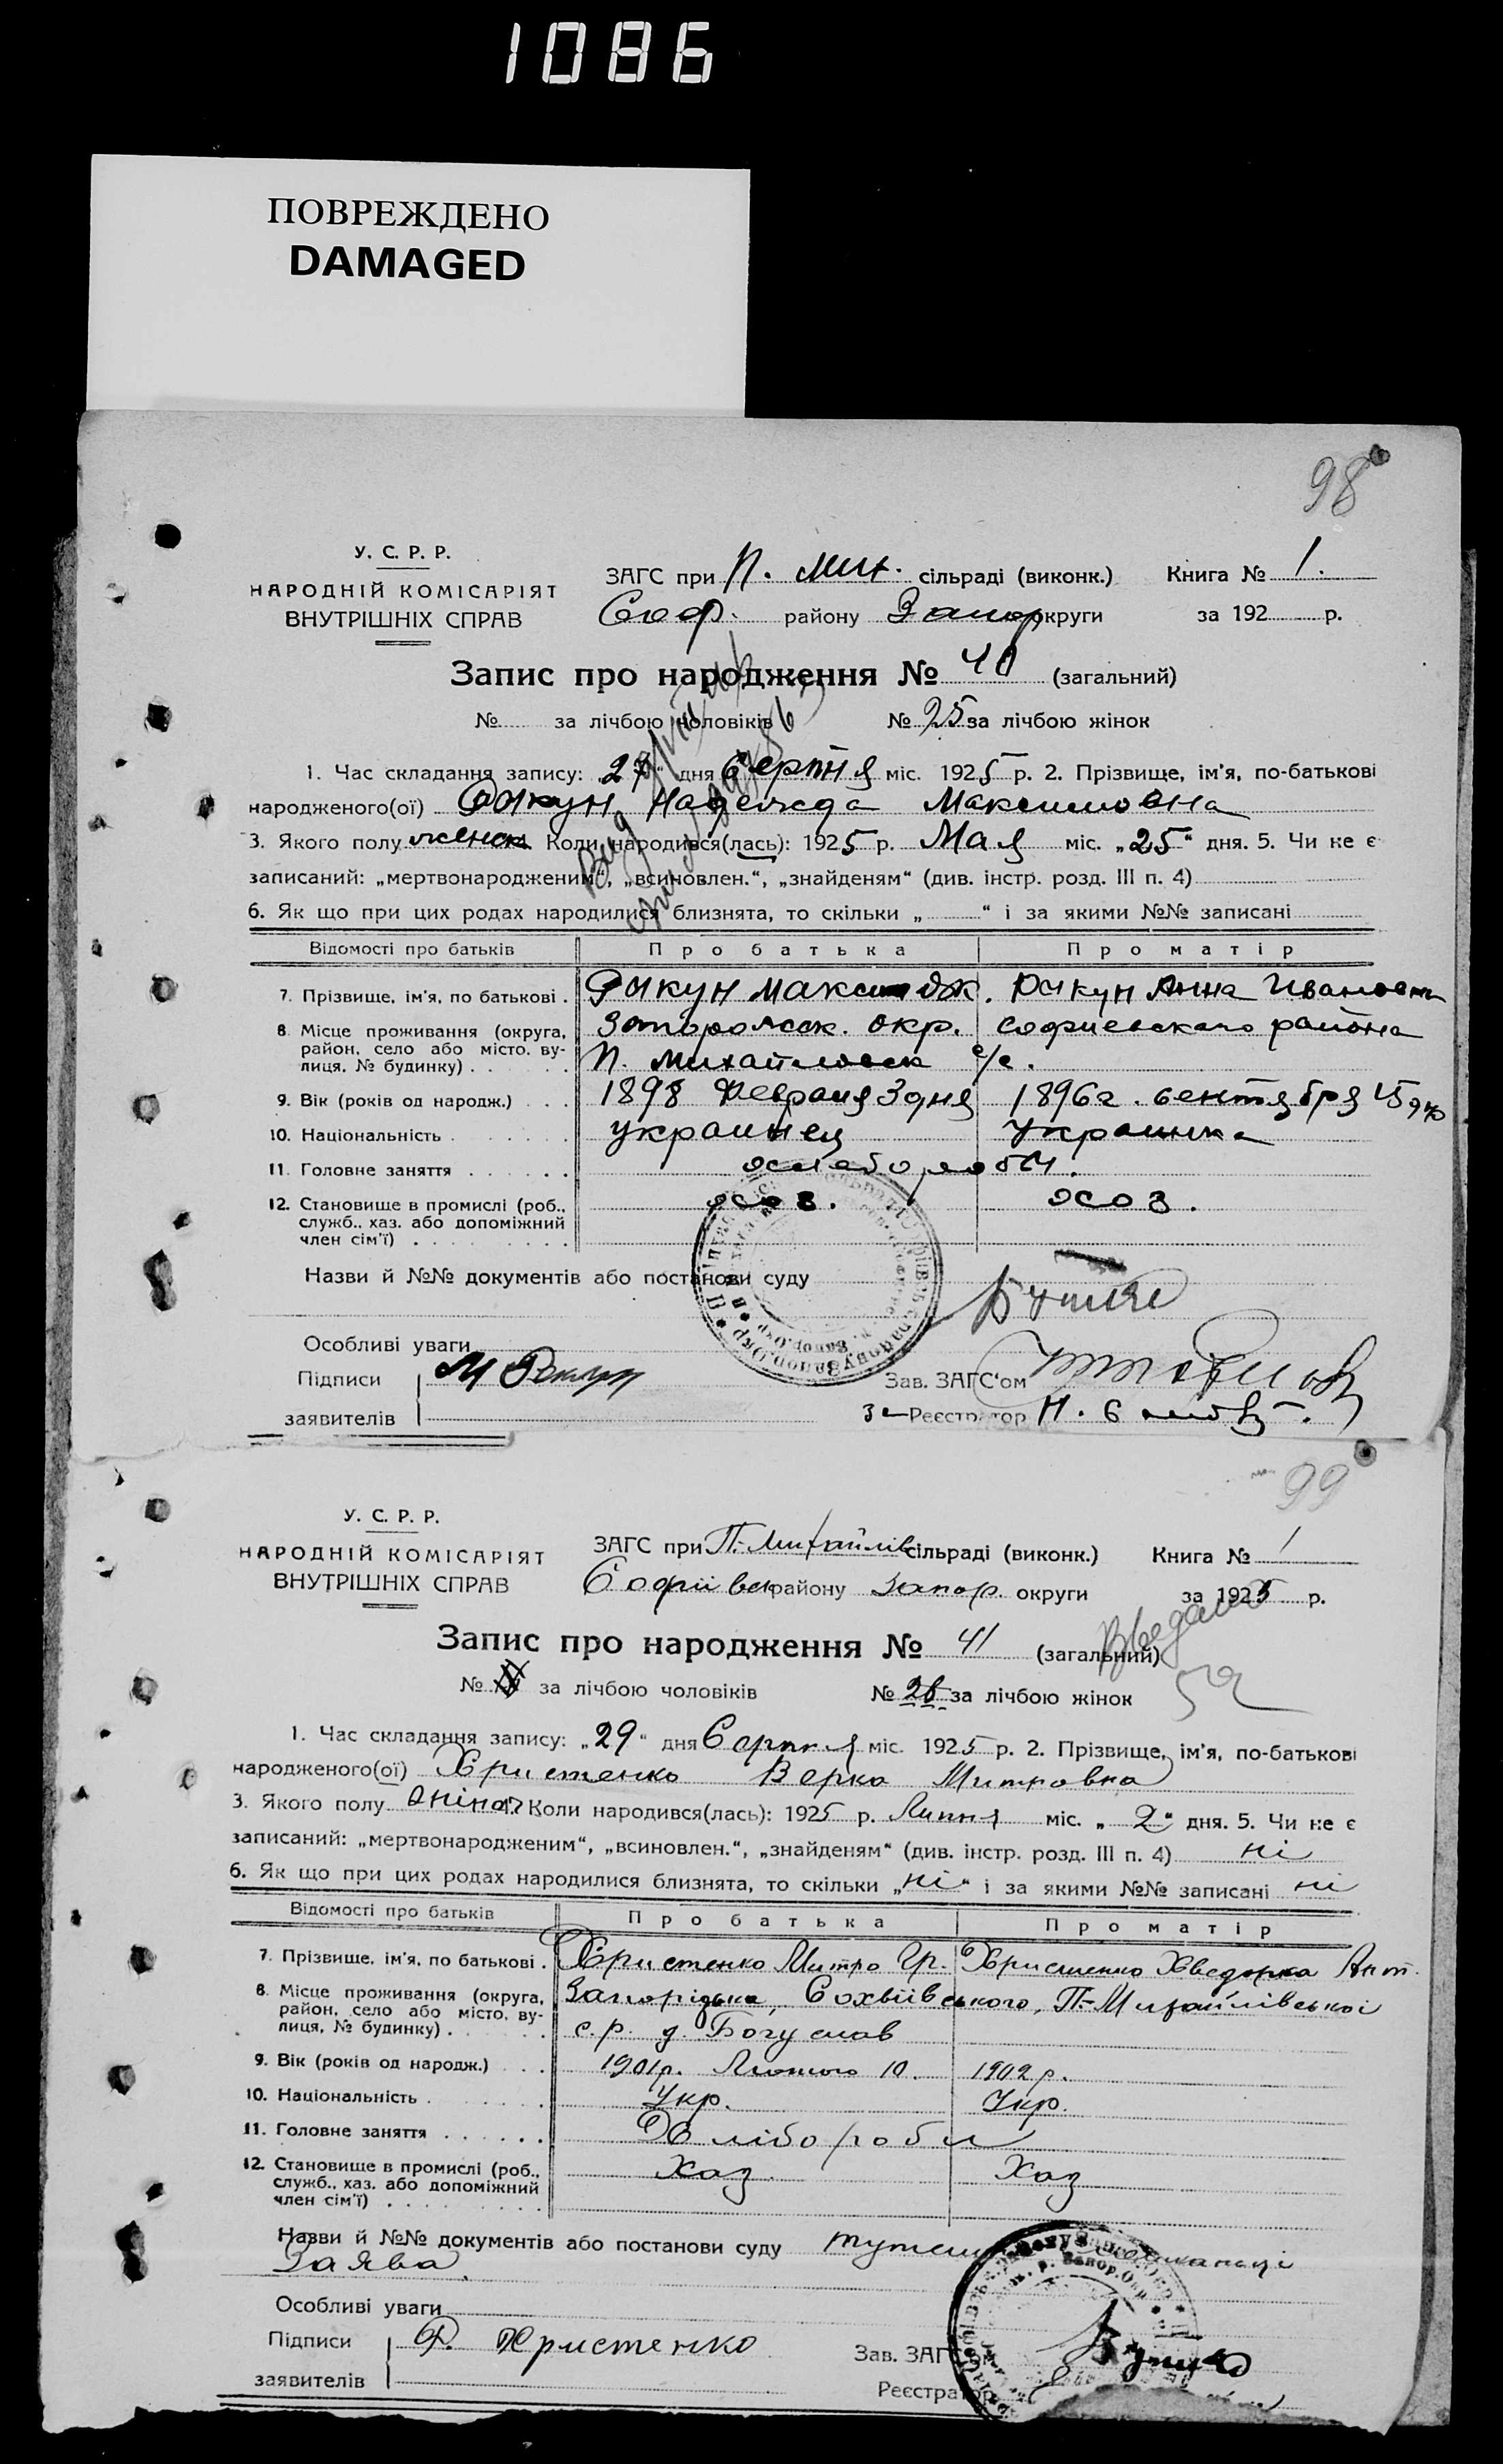 1086
ПОВРЕЖДЕНО
DAMAGED
98
У. С. Р. Р.
НАРОДНІЙ КОМІСАРІЯТ
ВНУТРІШНІХ СПРАВ
ЗАГС при П. Мих. сільраді (виконк.) Книга № 1.
Соф. району Запор округи за 192 р.
Запис про народження № 40 (загальний)
№ за лічбою чоловіків № 25 за лічбою жінок
1. Час складання запису: „27“ дня Серпня міс. 1925 р. 2. Прізвище, ім'я, по-батькові
народженого(ої) Надежда Максимовна
3. Якого полу женск Коли народився(лась): 1925 р. Мая міс. „25“ дня. 5. Чи не є
записаний: „мертвонародженим“, „всиновлен.“, „знайденям“ (див. інстр. розд. III п. 4)
6. Як що при цих родах народилися близнята, то скільки „ “ і за якими №№ записані
Відомості про батьків Про батька Про матір
7. Прізвище, ім'я, по батькові . Максим Анна Ивановна
8. Місце проживання (округа, район, село або місто, ву-лиця, № будинку) . Запорожск. окр. Софиевскаго района
П. Михайловск с/с.
9. Вік (років од народж.) 1898 Февраля 3 дня 1896 г. сентября 15 дня
10. Національність украинец украинка
11. Головне заняття
12. Становище в промислі (роб., служб., хаз. або допоміжний член сім'ї)
Назви й №№ документів або постанови суду
Особливі уваги
Підписи М
Зав. ЗАГС'ом
заявителів
За Реєстратор Н.
99
У. С. Р. Р.
НАРОДНІЙ КОМІСАРІЯТ
ВНУТРІШНІХ СПРАВ
ЗАГС при П.-Михайлів сільраді (виконк.) Книга № 1
Софіївськ району Запор. округи за 1925 р.
Запис про народження № 41 (загальний)
№ за лічбою чоловіків № 26 за лічбою жінок
1. Час складання запису: „29“ дня Серпня міс. 1925 р. 2. Прізвище, ім'я, по-батькові
народженого(ої) Христенко Верка Митровна
3. Якого полу жіноч. Коли народився(лась): 1925 р. Липня міс. „2“ дня. 5. Чи не є
записаний: „мертвонародженим“, „всиновлен.“, „знайденям“ (див. інстр. розд. III п. 4) ні
6. Як що при цих родах народилися близнята, то скільки „ні“ і за якими №№ записані ні
Відомості про батьків Про батька Про матір
7. Прізвище, ім'я, по батькові . Христенко Митро Гр. Христенко Хведорка Ант.
8. Місце проживання (округа, район, село або місто, ву-лиця, № будинку) . Запорізька, Сохвіївського, П.-Михайлівської
с.р. д. Богуслав
9. Вік (років од народж.) 1901р. Лютого 10. 1902 р.
10. Національність Укр. Укр.
11. Головне заняття Хлібороби
12. Становище в промислі (роб., служб., хаз. або допоміжний член сім'ї) Хаз Хаз
Назви й №№ документів або постанови суду
Заява.
Особливі уваги
Підписи Христенко
Зав. ЗАГС'ом
заявителів
Реєстратор